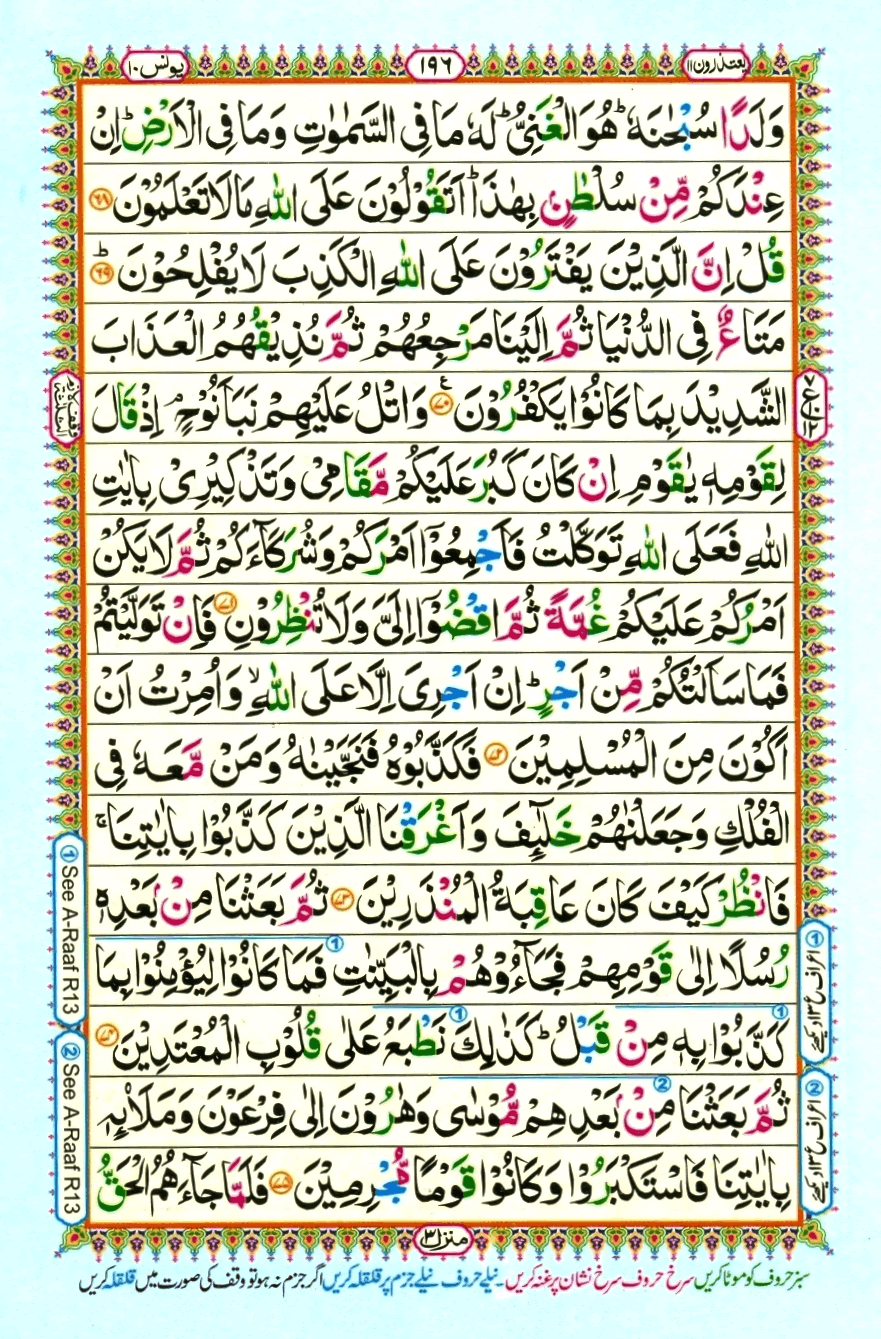 یعتذرون ۱۱
۱۹۶
یونس ۱۰
وَلَدًا سُبْحٰنَهٗ ؕ هُوَ الْغَنِیُّ ؕ لَهٗ مَا فِی السَّمٰوٰتِ وَمَا فِی الْاَرْضِ ؕ اِنْ
عِنْدَكُمْ مِّنْ سُلْطٰنٍۭ بِهٰذَا ؕ اَتَقُوْلُوْنَ عَلَی اللّٰهِ مَا لَا تَعْلَمُوْنَ ﴿۶۸﴾
قُلْ اِنَّ الَّذِیْنَ یَفْتَرُوْنَ عَلَی اللّٰهِ الْكَذِبَ لَا یُفْلِحُوْنَ ﴿۶۹﴾ؕ
مَتَاعٌ فِی الدُّنْیَا ثُمَّ اِلَیْنَا مَرْجِعُهُمْ ثُمَّ نُذِیْقُهُمُ الْعَذَابَ
الشَّدِیْدَ بِمَا كَانُوْا یَكْفُرُوْنَ ﴿۷۰﴾ وَاتْلُ عَلَیْهِمْ نَبَاَ نُوْحٍ ۘ اِذْ قَالَ
لِقَوْمِهٖ یٰقَوْمِ اِنْ كَانَ كَبُرَ عَلَیْكُمْ مَّقَامِیْ وَتَذْكِیْرِیْ بِاٰیٰتِ
اللّٰهِ فَعَلَی اللّٰهِ تَوَكَّلْتُ فَاَجْمِعُوْۤا اَمْرَكُمْ وَشُرَكَآءَكُمْ ثُمَّ لَا یَكُنْ
اَمْرُكُمْ عَلَیْكُمْ غُمَّةً ثُمَّ اقْضُوْۤا اِلَیَّ وَلَا تُنْظِرُوْنِ ﴿۷۱﴾ فَاِنْ تَوَلَّیْتُمْ
فَمَا سَاَلْتُكُمْ مِّنْ اَجْرٍ ؕ اِنْ اَجْرِیَ اِلَّا عَلَی اللّٰهِ ۙ وَاُمِرْتُ اَنْ
اَكُوْنَ مِنَ الْمُسْلِمِیْنَ ﴿۷۲﴾ فَكَذَّبُوْهُ فَنَجَّیْنٰهُ وَمَنْ مَّعَهٗ فِی
الْفُلْكِ وَجَعَلْنٰهُمْ خَلٰٓىِٕفَ وَاَغْرَقْنَا الَّذِیْنَ كَذَّبُوْا بِاٰیٰتِنَا ۚ
فَانْظُرْ كَیْفَ كَانَ عَاقِبَةُ الْمُنْذَرِیْنَ ﴿۷۳﴾ ثُمَّ بَعَثْنَا مِنْۢ بَعْدِهٖ
رُسُلًا اِلٰی قَوْمِهِمْ فَجَآءُوْهُمْ بِالْبَیِّنٰتِ فَمَا كَانُوْا لِیُؤْمِنُوْا بِمَا
كَذَّبُوْا بِهٖ مِنْ قَبْلُ ؕ كَذٰلِكَ نَطْبَعُ عَلٰی قُلُوْبِ الْمُعْتَدِیْنَ ﴿۷۴﴾
ثُمَّ بَعَثْنَا مِنْۢ بَعْدِهِمْ مُّوْسٰی وَهٰرُوْنَ اِلٰی فِرْعَوْنَ وَمَلَا۟ىِٕهٖ
بِاٰیٰتِنَا فَاسْتَكْبَرُوْا وَكَانُوْا قَوْمًا مُّجْرِمِیْنَ ﴿۷۵﴾ فَلَمَّا جَآءَهُمُ الْحَقُّ
① اعراف ع ۱۳ دیکھئے
② اعراف ع ۱۳ دیکھئے
① See A-Raaf R13
② See A-Raaf R13
منزل ۳
سبز حروف کو موٹا کریں سرخ حروف سرخ نشان پر غنہ کریں ۔ نیلے حروف نیلے جزم پر قلقلہ کریں اگر جزم نہ ہو تو وقف کی صورت میں قلقلہ کریں